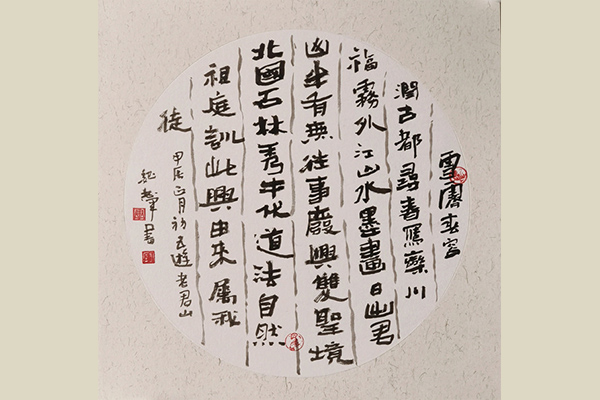 雪春
潤古都尋春欒川
福霧外江山水墨畫日出君
山半有無往事廢興雙聖境
北國石林秀化道法自然
祖庭訓此興由來屬我
徒
甲辰正月初五遊老君山
書